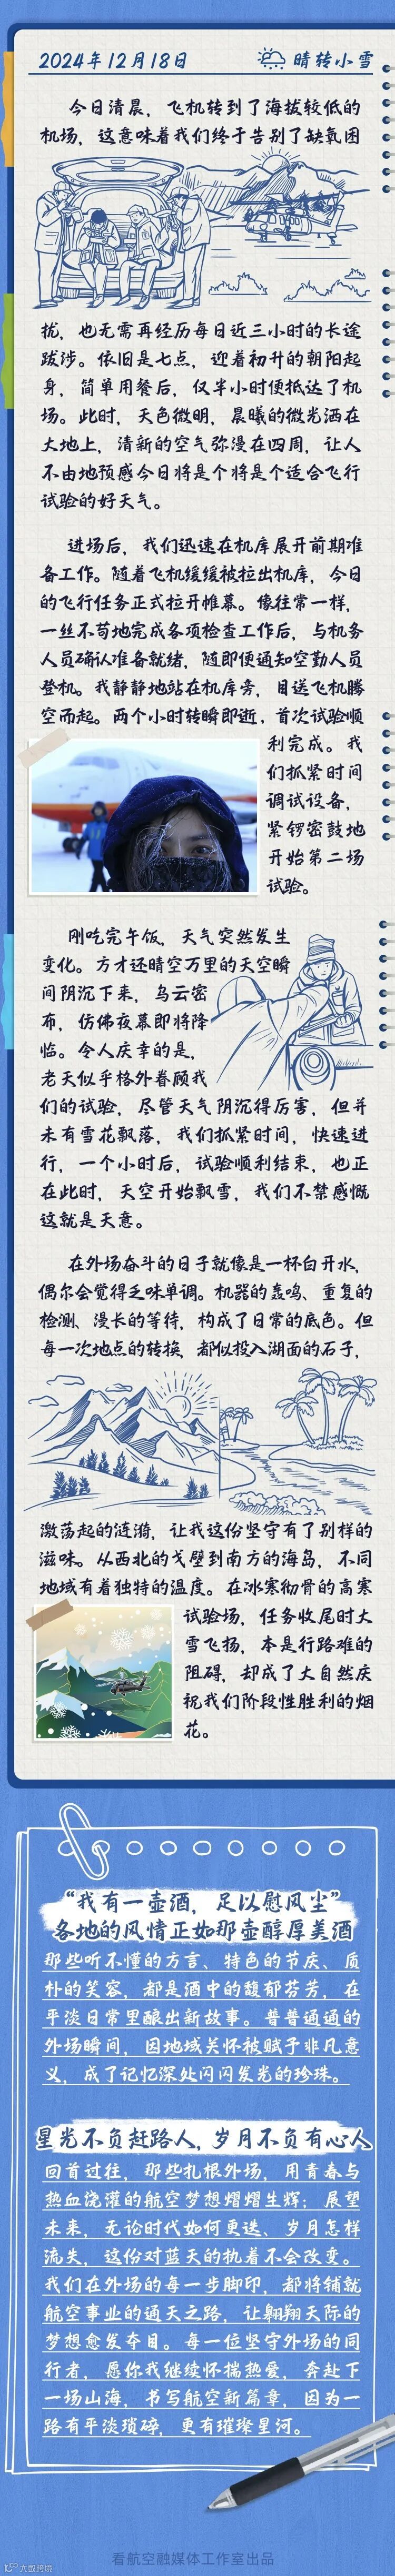 2024年12月18日
晴转小雪
今日清晨，飞机转到了海拔较低的
机场，这意味着我们终于告别了缺氧困
扰，也无需再经历每日近三小时的长途
跋涉。依旧是七点，迎着初升的朝阳起
身，简单用餐后，仅半小时便抵达了机
场。此时，天色微明，晨曦的微光洒在
大地上，清新的空气弥漫在四周，让人
不由地预感今日将是个将是个适合飞行
试验的好天气。
进场后，我们迅速在机库展开前期准
备工作。随着飞机缓缓被拉出机库，今日
的飞行任务正式拉开帷幕。像往常一样，
一丝不苟地完成各项检查工作后，与机务
人员确认准备就绪，随即便通知空勤人员
登机。我静静地站在机库旁，目送飞机腾
空而起。两个小时转瞬即逝，首次试验顺
利完成。我
们抓紧时间
调试设备，
紧锣密鼓地
开始第二场
试验。
刚吃完午饭，天气突然发生
变化。方才还晴空万里的天空瞬
间阴沉下来，乌云密
布，仿佛夜幕即将降
临。令人庆幸的是，
老天似乎格外眷顾我
们的试验，尽管天气阴沉得厉害，但并
未有雪花飘落，我们抓紧时间，快速进
行，一个小时后，试验顺利结束，也正
在此时，天空开始飘雪，我们不禁感慨
这就是天意。
在外场奋斗的日子就像是一杯白开水，
偶尔会觉得乏味单调。机器的轰鸣、重复的
检测、漫长的等待，构成了日常的底色。但
每一次地点的转换，都似投入湖面的石子，
激荡起的涟漪，让我这份坚守有了别样的
滋味。从西北的戈壁到南方的海岛，不同
地域有着独特的温度。在冰寒彻骨的高寒
试验场，任务收尾时大
雪飞扬，本是行路难的
阻碍，却成了大自然庆
祝我们阶段性胜利的烟
花。
“我有一壶酒，足以慰风尘”
各地的风情正如那壶醇厚美酒
那些听不懂的方言、特色的节庆、质
朴的笑容，都是酒中的馥郁芬芳，在
平淡日常里酿出新故事。普普通通的
外场瞬间，因地域关怀被赋予非凡意
义，成了记忆深处闪闪发光的珍珠。
星光不负赶路人，岁月不负有心人
回首过往，那些扎根外场，用青春与
热血浇灌的航空梦想熠熠生辉；展望
未来，无论时代如何更迭、岁月怎样
流失，这份对蓝天的执着不会改变。
我们在外场的每一步脚印，都将铺就
航空事业的通天之路，让翱翔天际的
梦想愈发夺目。每一位坚守外场的同
行者，愿你我继续怀揣热爱，奔赴下
一场山海，书写航空新篇章，因为一
路有平淡琐碎，更有璀璨星河。
看航空融媒体工作室出品
大数跨境